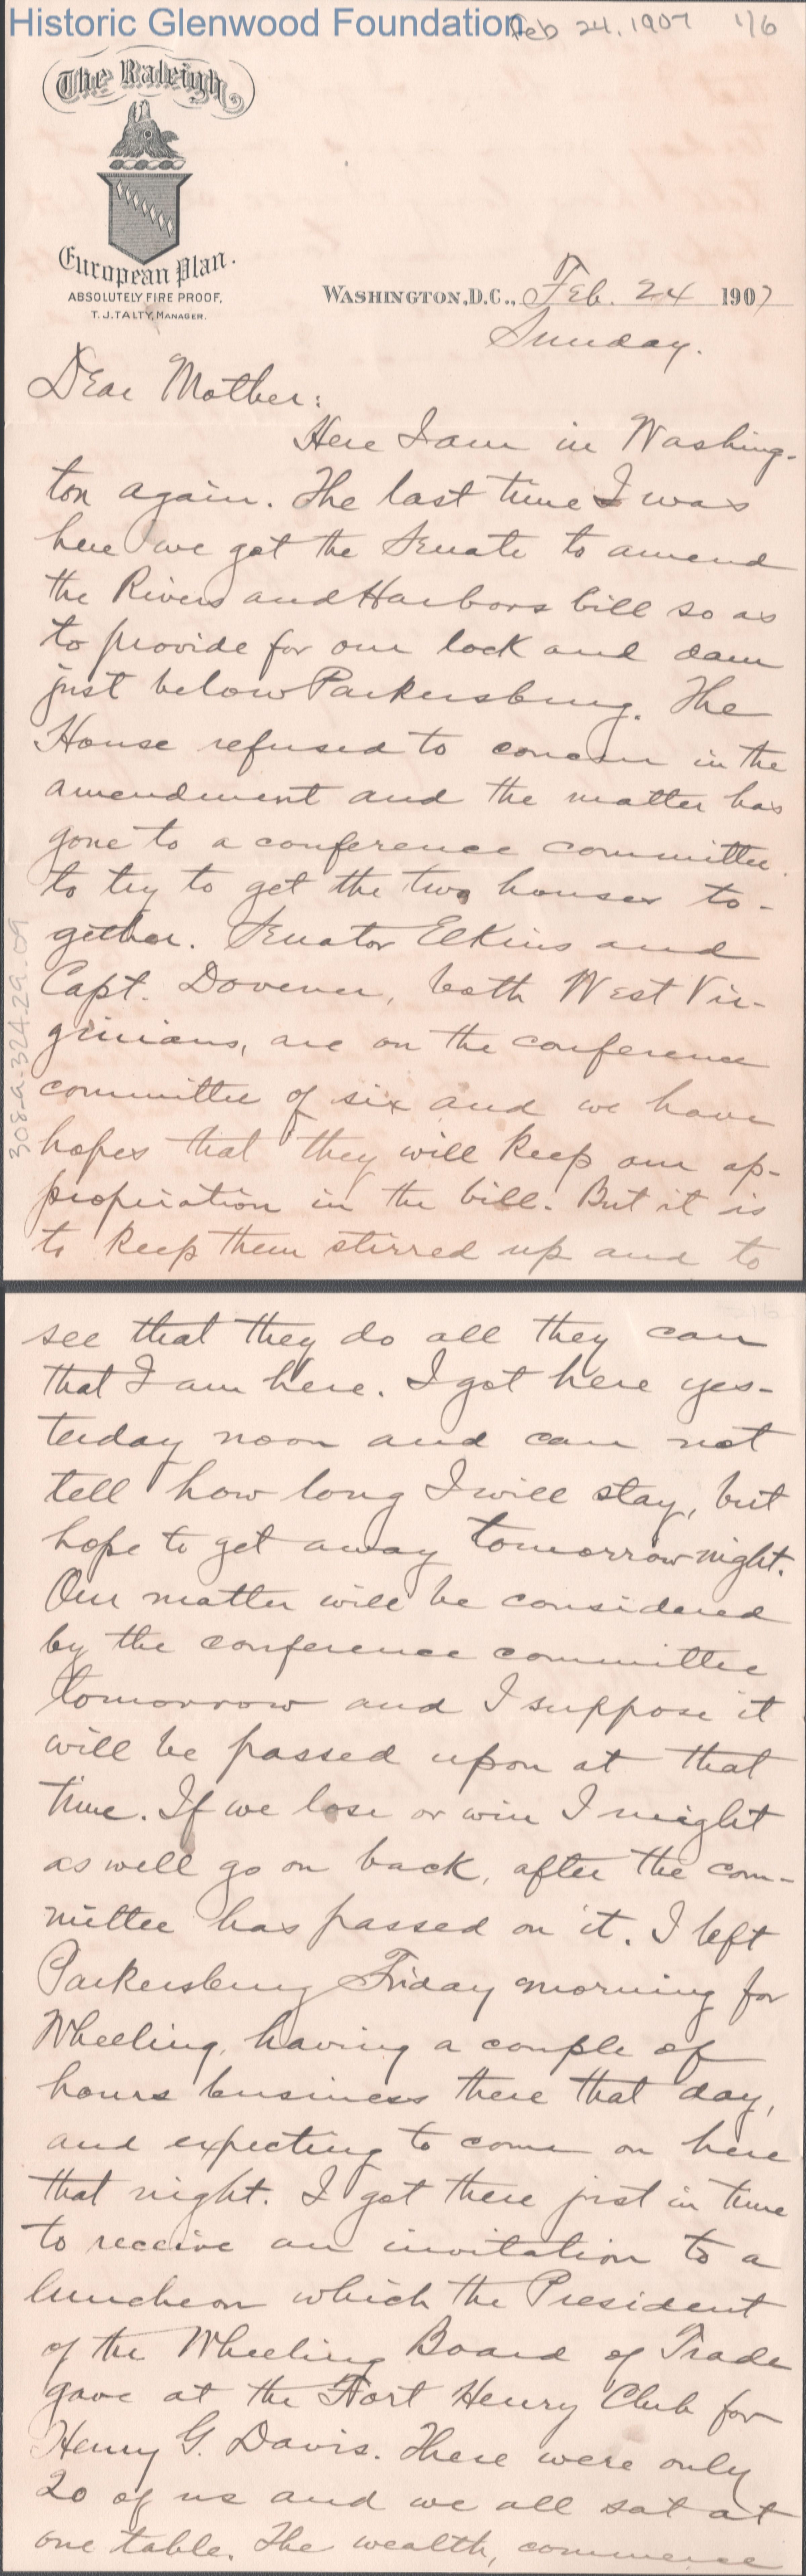 Historic Glenwood Foundation
Feb 24, 1907 1/6
The Raleigh,
European Plan.
ABSOLUTELY FIRE PROOF,
T. J. TALTY, MANAGER.
WASHINGTON, D.C., Feb. 24 1907
Sunday.
Dear Mother:
Here I am in Washing-
ton again. The last time I was
here we got the Senate to amend
the Rivers and Harbors bill so as
to provide for our lock and dam
just below Parkersburg. The
House refused to concur in the
amendment and the matter has
gone to a conference committee
to try to get the two houses to-
gether. Senator Elkins and
Capt. Dovener, both West Vir-
ginians, are on the conference
committee of six and we have
hopes that they will keep our ap-
propriation in the bill. But it is
to keep them stirred up and to
308-a-324.29.09
see that they do all they can
that I am here. I got here yes-
terday noon and can not
tell how long I will stay, but
hope to get away tomorrow night.
Our matter will be considered
by the conference committee
tomorrow and I suppose it
will be passed upon at that
time. If we lose or win I might
as well go on back, after the com-
mittee has passed on it. I left
Parkersburg Friday morning for
Wheeling, having a couple of
hours business there that day,
and expecting to come on here
that night. I got there just in time
to receive an invitation to a
luncheon which the President
of the Wheeling Board of Trade
gave at the Fort Henry Club for
Henry G. Davis. There were only
20 of us and we all sat at
one table. The wealth, commerce